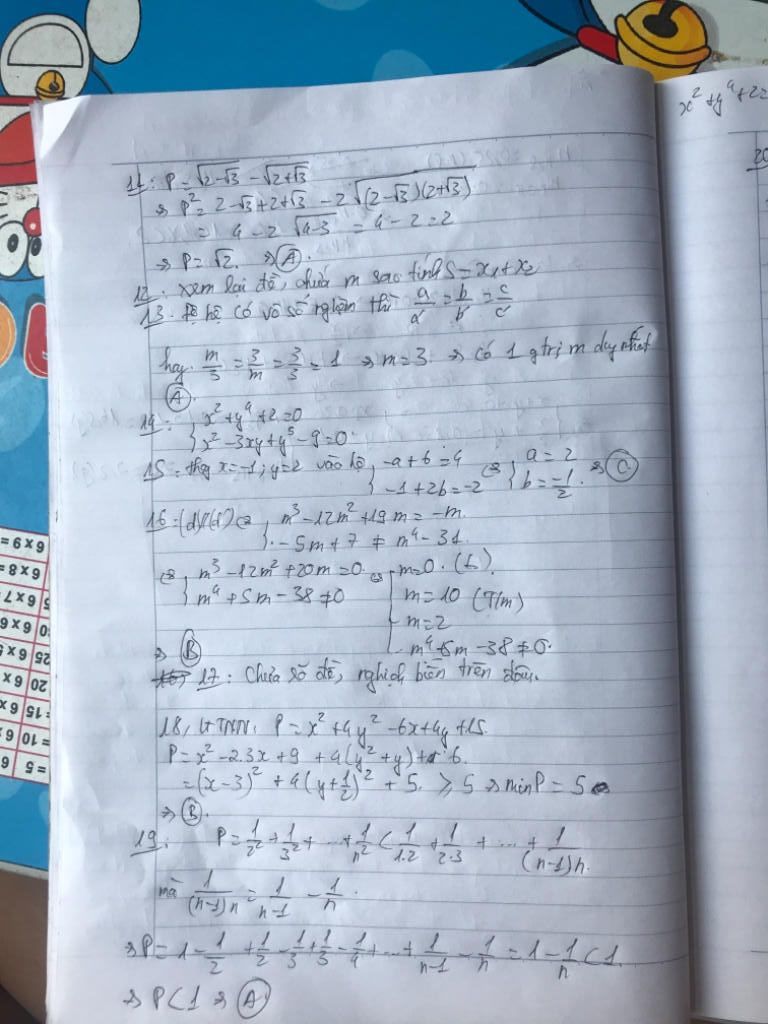 11: P = √(2-√3) - √(2+√3)
⇒ P² = 2-√3+2+√3 - 2√((2-√3)(2+√3))
= 4 - 2√(4-3) = 4 - 2 = 2
⇒ P = √2. ⇒ Ⓐ.
12. Xem lại đề, chứa m sao tính S = x₁ + x₂
13. Để hệ có vô số nghiệm thì a/a' = b/b' = c/c'
hay m/3 = 3/m = 3/3 = 1 ⇒ m = 3. ⇒ có 1 gtrị m duy nhất
Ⓐ
14: { x² + y⁴ + 2 = 0
x² - 3xy + y⁵ - 9 = 0.
15: thay x = -1; y = 2 vào hệ { -a + 6 = 4 ⇔ { a = 2 ⇒ Ⓒ
-1 + 2b = -2 b = -1/2.
16: (d)//(d') ⇔ { m³ - 12m² + 19m = -m
-5m + 7 ≠ m⁴ - 31
⇔ { m³ - 12m² + 20m = 0 ⇔ m = 0. (L)
m⁴ + 5m - 38 ≠ 0 m = 10 (T/m)
m = 2
m⁴ + 5m - 38 ≠ 0.
⇒ Ⓑ
17: Chưa rõ đề, nghịch biến trên đâu.
18, GTNN. P = x² + 4y² - 6x + 4y + 15
P = x² - 2.3x + 9 + 4(y² + y) + 6
= (x-3)² + 4(y + 1/2)² + 5 ≥ 5 ⇒ minP = 5
⇒ Ⓑ.
19: P = 1/2² + 1/3² + ... + 1/n² < 1/1.2 + 1/2.3 + ... + 1/(n-1)n.
mà 1/(n-1)n = 1/n-1 - 1/n.
⇒ P = 1 - 1/2 + 1/2 - 1/3 + 1/3 - 1/4 + ... + 1/n-1 - 1/n = 1 - 1/n < 1
⇒ P < 1 ⇒ Ⓐ
x² + y⁴ + 2
20
6 x 9 =
6 x 8 =
6 x 7 =
6 x 6
6 x 5
6 x
= 15
= 10
= 5